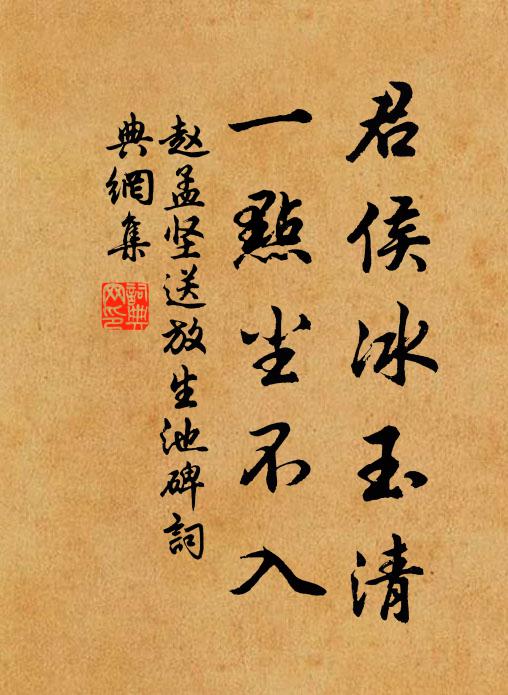 君侯冰玉清
一點尘不入
赵孟坚送放生池碑詞
典網集
詞典
网印